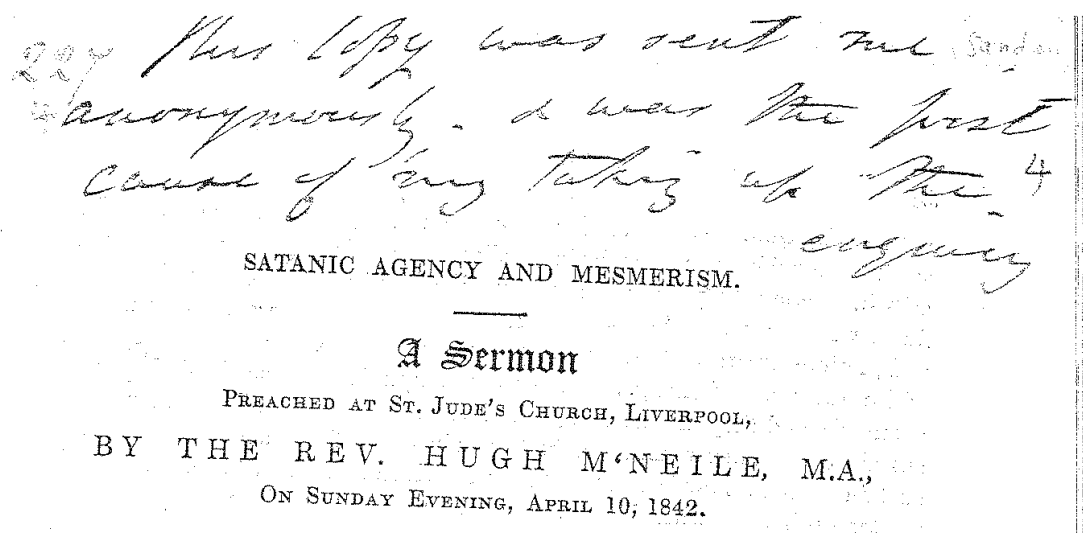 This Copy was sent me
227
anonymously. & was the first
cause of my taking up the
4
enquiry
SATANIC AGENCY AND MESMERISM.
A Sermon
PREACHED AT ST. JUDE'S CHURCH, LIVERPOOL,
BY THE REV. HUGH M‘NEILE, M.A.,
ON SUNDAY EVENING, APRIL 10, 1842.